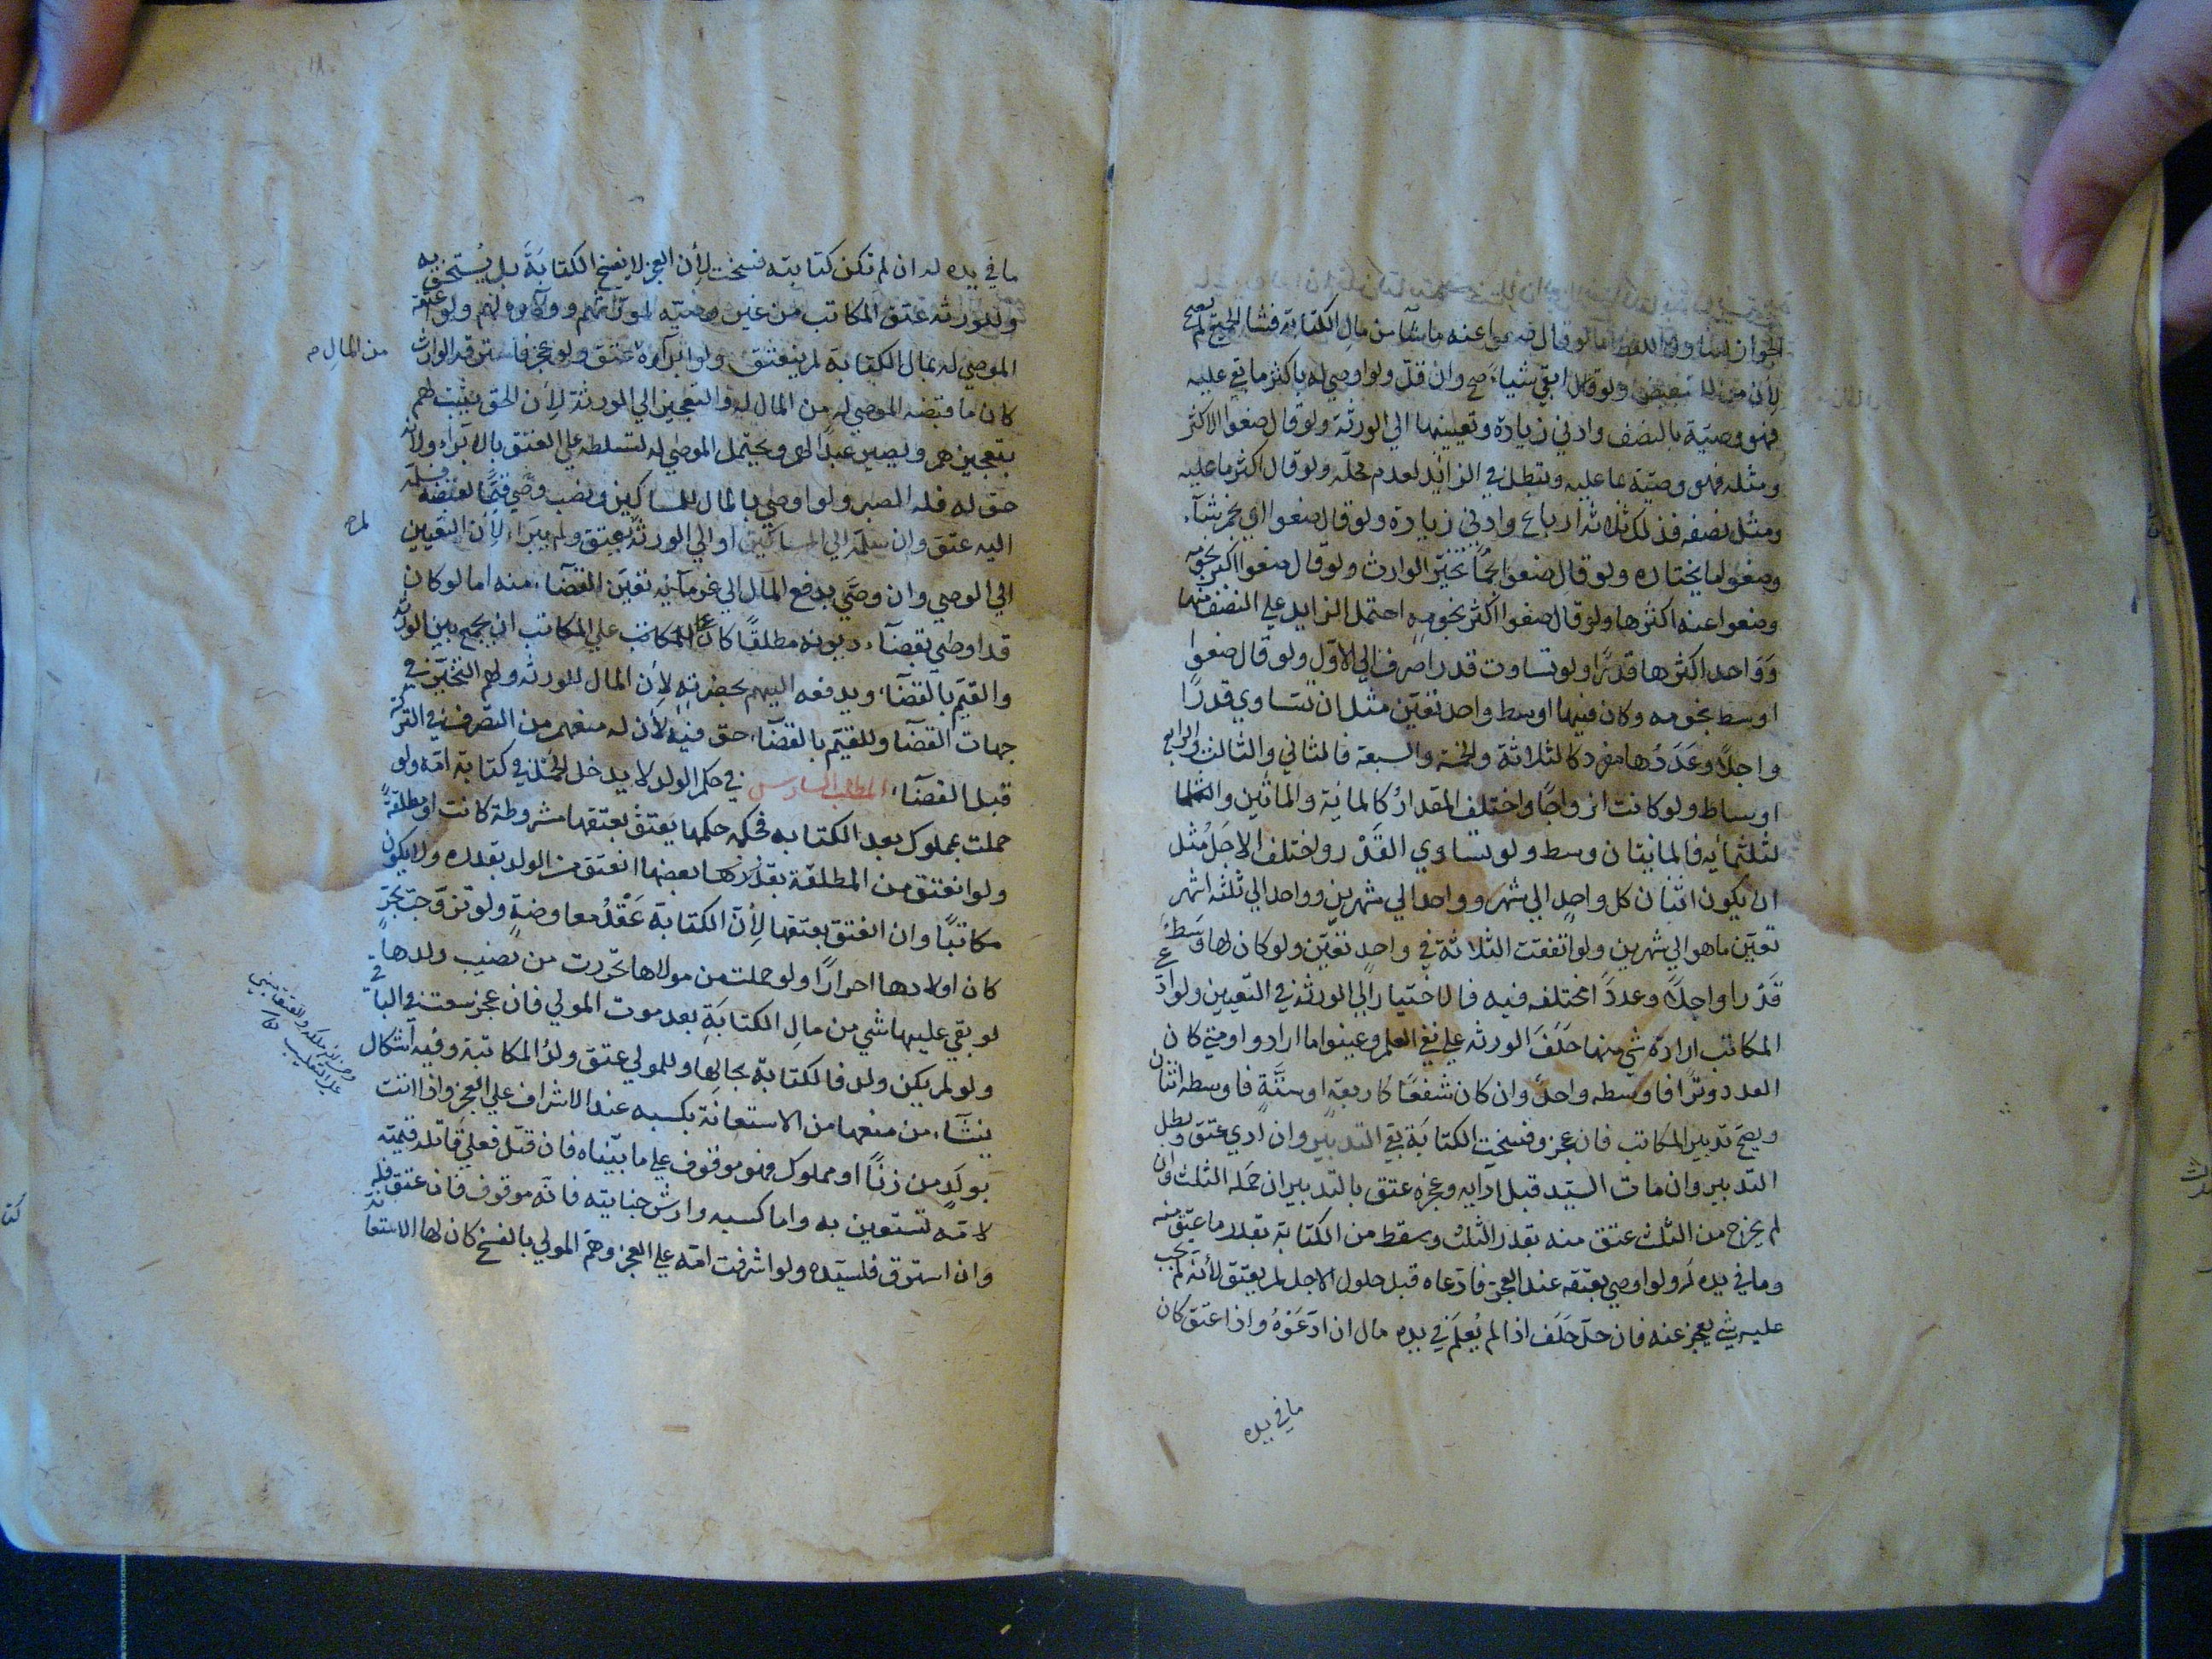 الجواز اما لو قال ضعوا عنه ما شاء من مال الكتابة فشا الجميع لم يصح
لأن من للتبعيض ولو قال ابقي شياء صح وان قل ولو اوصي له باكثر ما بقي عليه
فهو وصية بالنصف وادني زيادة وتعيينها الي الورثة ولو قال ضعوا الاكثر
ومثله فهو وصية بما عليه وتبطل في الزايد لعدم محله ولو قال اكثر ما عليه
ومثل نصفه فذلك ثلاثة ارباع وادني زيادة ولو قال ضعوا اي نجم شآء
وضعوا ما يختاره ولو قال ضعوا نجما تخير الوارث ولو قال ضعوا اكبر نجومه
وضعوا عنه اكثرها ولو قال ضعوا اكثر نجومه احتمل الزايد علي النصف منها
وواحد اكثرها قدرا ولو تساوت قدرا صرف الي الاول ولو قال ضعوا
اوسط نجومه وكان فيها اوسط واحد تعين مثل ان تتساوي قدرا
واجلا وعددها مفرد كالثلاثة والخمسة والسبعة فالثاني والثالث والرابع
اوساط ولو كانت ازواجا واختلف المقدار كالمائة والمائتين والثلثمائة
فالمائتان وسط ولو تساوي القدر واختلف الاجل مثل
ان يكون اثنان كل واحد الي شهر وواحد الي شهرين وواحد الي ثلثة اشهر
تعين ما هو الي شهرين ولو اتفقت الثلاثة في واحد تعين ولو كان لها وسط
قدرا واجلا وعددا مختلفه فيه فالاختيار الي الورثة في التعيين ولو ادعي
المكاتب ارادة شي منها حلف الورثه علي نفي العلم وعينوا ما ارادوا ومتي كان
العدد وترا فاوسطه واحد وان كان شفعا كاربعة او ستة فاوسطه اثنان
ويصح تدبير المكاتب فان عجز وفسخت الكتابة بقي التدبير وان ادي عتق وبطل
التدبير وان مات السيد قبل ادايه وعجزه عتق بالتدبير ان حمله الثلث وان
لم يخرج من الثلث عتق منه بقدر الثلث وسقط من الكتابة بقدر ما عتق منه
وما في يده له ولو اوصي بعتقه عند العجز فادعاه قبل حلول الاجل لم يعتق لأنه لم يجب
عليه شي يعجز عنه فان حل حلف اذا لم يعلم في يده مال ان ادعوه واذا عتق كان
ما في يده
ما في يده له ان لم تكن كتابته فسخت لأن العجز لا يفسخ الكتابة بل يستحق به
وللورثه عتق المكاتب من غير وصيه لمورثهم ولو اعتقه
الموصي له بمال الكتابة لم ينعتق ولو ابرأه عتق ولو عجز فاسترقه الوارث
من المال م
كان ما قبضه الموصي له من المال له والتعجيز الي الورثة لأن الحق يثبت لهم
بتعجيزهم ويصير عبدا لهم ويحتمل الموصي له لتسلطه علي العتق بالابراء ولأنه
حق له فله الصبر ولو اوصي بالمال للمساكين ونصب وصي قيما لقبضه فسلمه
اليه عتق وان سلمه الي المساكين او الي الورثة لم يعتق ولم يبراء لأن التعيين
الي الوصي وان وصي بدفع المال الي غرمآئه تعين القضآء منه اما لو كان
قد اوصي بقضآء ديونه مطلقا كان علي المكاتب ان يجمع بين الورثة
والقيم بالقضآء ويدفعه اليهم بحضرته لأن المال للورثه ولهم التخير في
جهات القضآء وللقيم بالقضآء حق فيه لأن له منعهم من التصرف في التركة
قبل القضآء المطلب السادس في حكم الولد لا يدخل الحمل في كتابة امه ولو
حملت بمملوك بعد الكتابه فحكمه حكمها يعتق بعتقها مشروطة كانت او مطلقة
ولو انعتق من المطلقة بقدرها بعضها انعتق من الولد بقدره ولا يكون
مكاتبا وان انعتق بعتقها لأن الكتابة عقد معاوضة ولو تزوجت بحر
كان اولادها احرارا ولو حملت من مولاها تحررت من نصيب ولدها
لو بقي عليها شي من مال الكتابة بعد موت المولي فان عجز سعت في الباقي
ولو لم يكن ولد فالكتابة بحالها وللمولي عتق ولد المكاتبة وفيه اشكال
ينشآء من منعها من الاستعانة بكسبه عند الاشراف علي العجز واذا اتت
بولد من زنا او مملوك فهو موقوف علي ما بيناه فان قتل فعلي قاتله قيمته
لامه تستعين به واما كسبه وارش جنايته فانه موقوف فان عتق فله
وان استرق فلسيده ولو اشرفت امه علي العجز وهم المولي بالفسخ كان لها الاستعانة